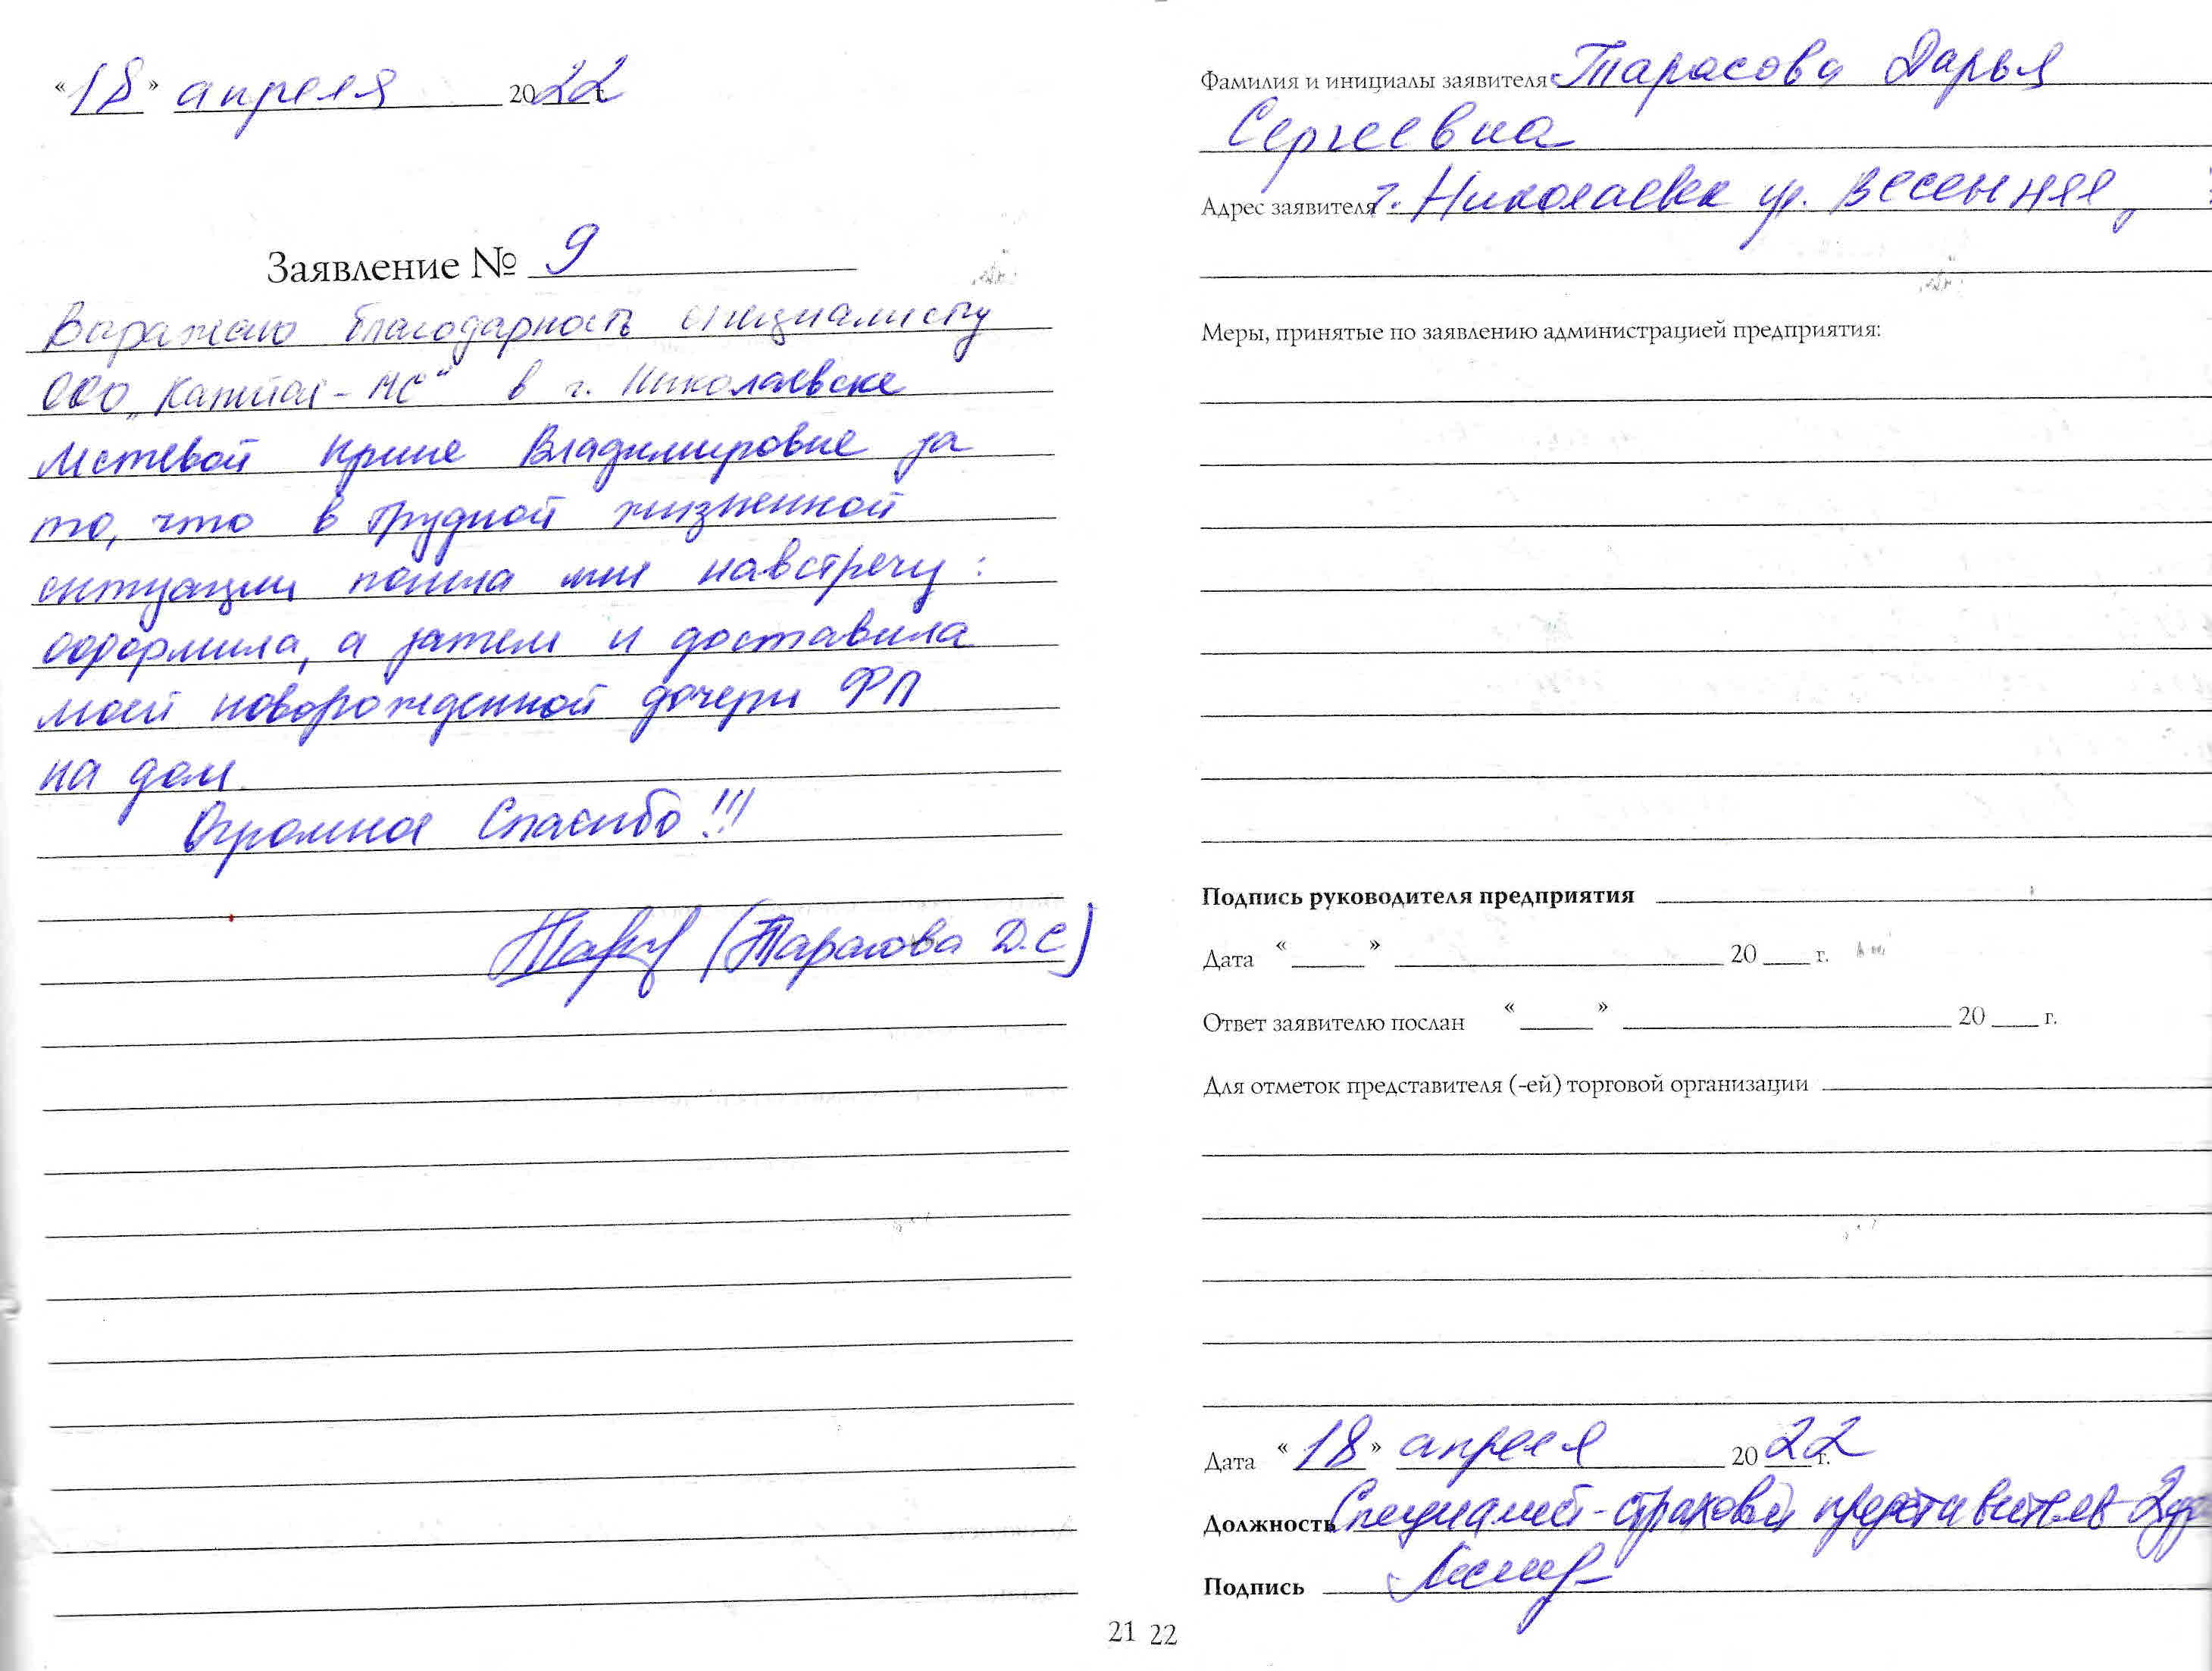 « 18 » апреля 2022
Заявление № 9
Выражаю благодарность специалисту
ООО „Капитал-МС“ в г. Николаевске
Ирине Владимировне за
то, что в трудной жизненной
ситуации пошла мне навстречу :
оформила, а затем и доставила
моей новорожденной дочери ФП
на дом.
Огромное Спасибо!!!
(Тарасова Д.С)
21
Фамилия и инициалы заявителя Тарасова Дарья
Сергеевна
Адрес заявителя г. Николаевск ул. Весенняя,
Меры, принятые по заявлению администрацией предприятия:
Подпись руководителя предприятия
Дата « » 20 г.
Ответ заявителю послан « » 20 г.
Для отметок представителя (-ей) торговой организации
Дата « 18 » апреля 2022 г.
Должность Специалист-страховой представитель 2
Подпись
22